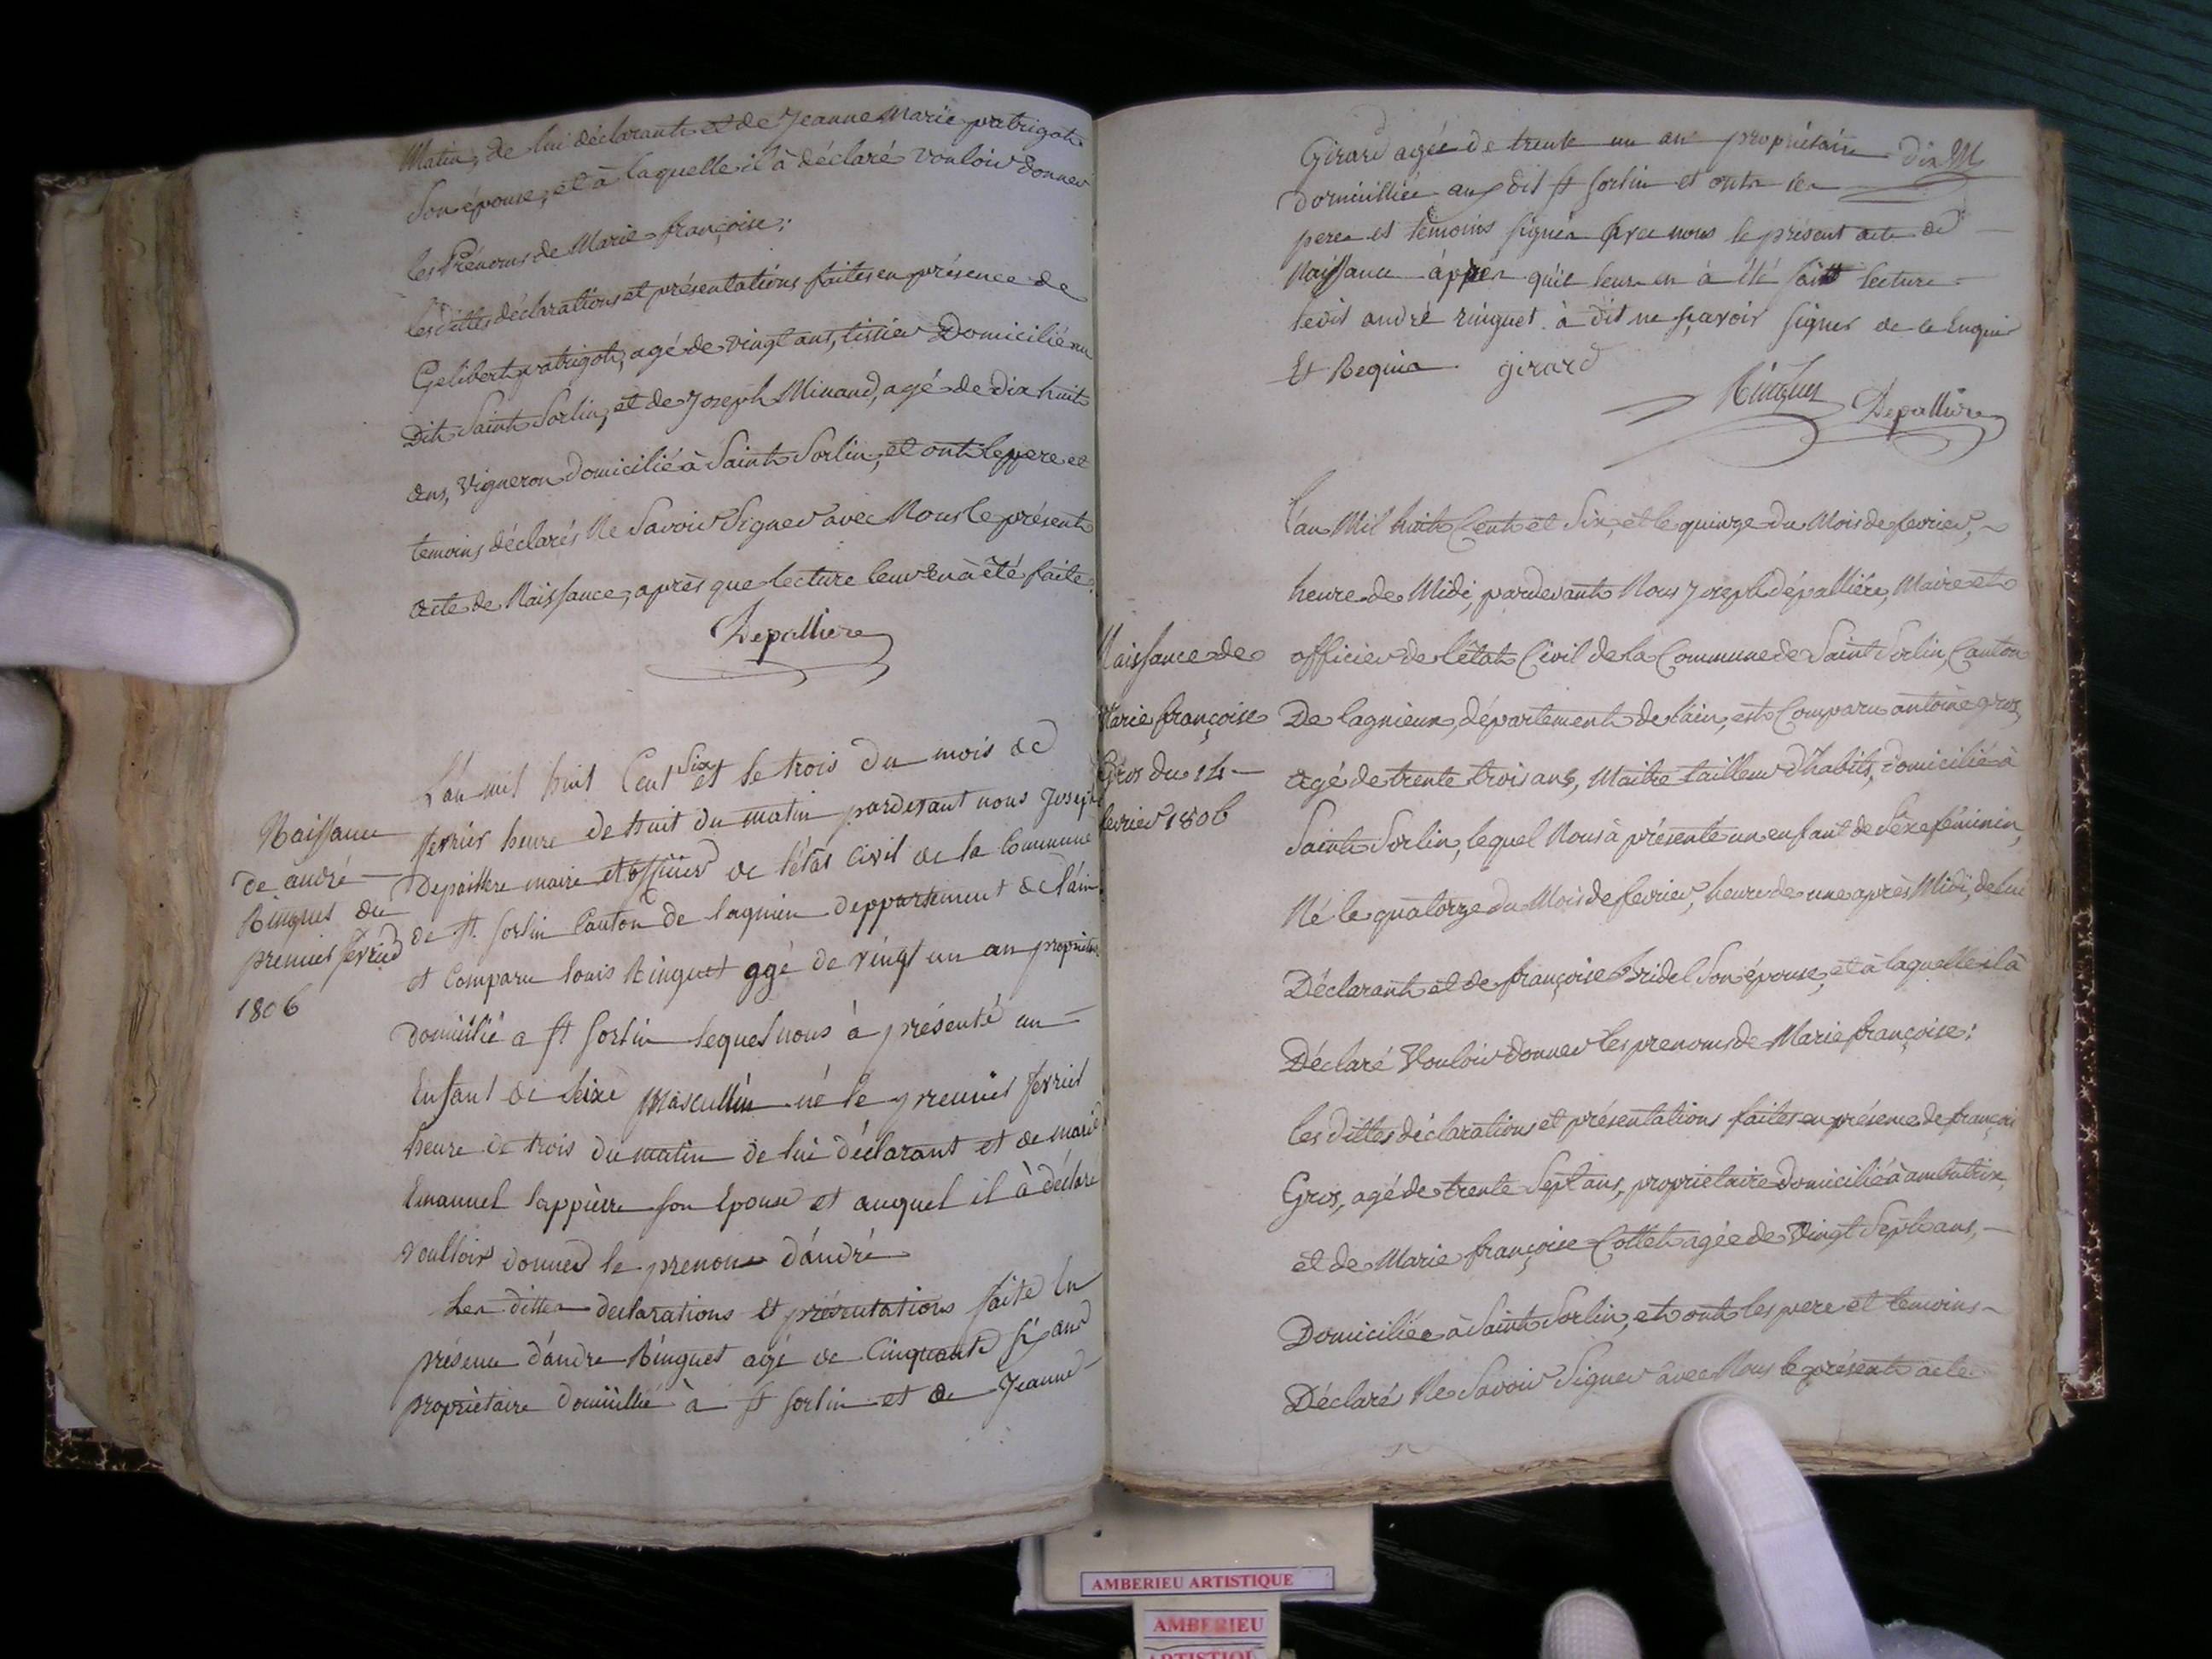 Matin, de lui déclarant et de Jeanne Marie patrigot
Son épouse, et à laquelle il à déclaré vouloir donner
les Prénoms de Marie françoise;
les dittes déclarations et présentations faites en présence de
Gelibert patrigot, agé de vingt ans, tissier Domicilié au
Dit Saint Sorlin, et de Joseph Minand, agé de dix huit
ans, Vigneron domicilié à Saint Sorlin, et ont le pere et
temoins déclarés Ne Savoir Signer avec Nous le présent
acte de Naissance, après que lecture leur en à été faite.
Depalliere
Naissance
de andré
Rinquet du
premier fevrier
1806
L'an mil huit Cent Six et le trois du mois de
fevrier heure de huit du matin pardevant nous Joseph
Depalliere maire et officier de l'état Civil de la Commune
de St. Sorlin Canton de lagnieu deppartement de l'ain
et Comparu louis Rinquet agé de vingt un an propriétaire
domicilié a St Sorlin lequel nous à présenté un
Enfant de Seixe Mascullin né le premier fevrier
heure de trois du matin de lui déclarant et de marie
Emanuel lappierre son Epouse et auquel il à déclare
voulloir donner le prenom d'andré
Les dittes declarations et présentations faite En
présence d'andre Rinquet agé de Cinquante six ans
propriètaire domicillié à St Sorlin et de Jeanne
Girard agée de trente un an propriétaire
domicilliée au dit St Sorlin et ont les
pere et temoins signés avec nous le présent acte de
Naissance après qu'il leur en à été fait lecture
ledit andré rinquet à dit ne sçavoir signer de ce Enquis
Et Requis girard
Rinquet Depalliere
Naissance de
Marie françoise
Gros du 14
fevrier 1806
l'an Mil huit Cent et Six, et le quinze du Mois de fevrier,
heure de Midi, pardevant Nous Joseph dépalliére, Maire et
officier de l'état Civil de la Commune de Saint Sorlin, Canton
De lagnieux, département de l'ain, est Comparu antoine gros,
agé de trente trois ans, Maitre tailleur d'habits, domicilié à
Saint Sorlin, lequel Nous à présenté un enfant de Sèxe féminin,
Né le quatorze du Mois de fevrier, heure de une après Midi, de lui
Déclarant et de françoise bridel Son épouse, et à laquelle il à
Déclaré Vouloir donner les prenoms de Marie françoise;
les dittes déclarations et présentations faites en présence de françois
Gros, agé de trente Sept ans, proprietaire domicilié à ambutrix
et de Marie françoise Collet agée de Vingt Sept ans,
Domiciliée à Saint Sorlin, et ont les pere et temoins
Déclarés Ne Savoir Signer avec Nous le présent acte
AMBERIEU ARTISTIQUE
AMBERIEU
ARTISTIQU